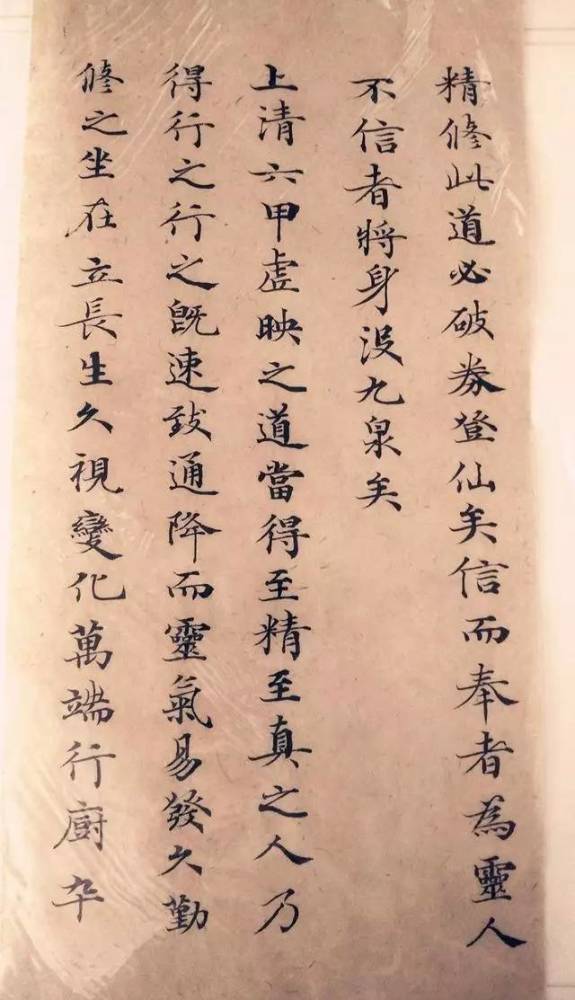 精修此道必破券登仙矣信而奉者為靈人
不信者將身没九泉矣
上清六甲虗映之道當得至精至真之人乃
得行之行之既速致通降而靈氣易發久勤
修之坐在立長生久視變化萬端行廚卒